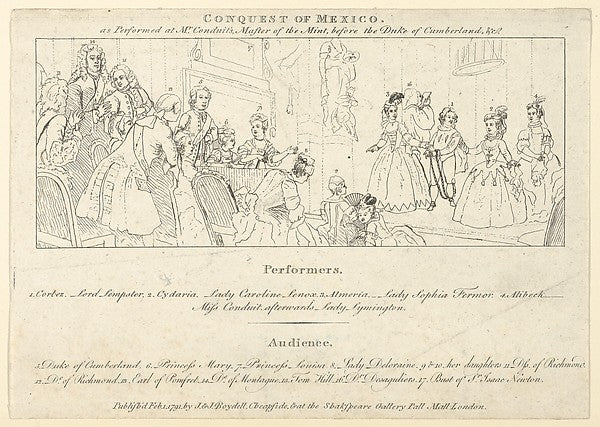 CONQUEST OF MEXICO.
as Performed at Mr. Conduit's, Master of the Mint, before the Duke of Cumberland, &c.
Performers.
1. Cortez. Lord Lempster, 2. Cydaria. Lady Caroline Lenox. 3. Almeria. Lady Sophia Fermor. 4. Alibeck
Miss Conduit. afterwards Lady Lymington.
Audience.
5. Duke of Cumberland. 6. Princess Mary, 7. Princess Louisa 8. Lady Deloraine, 9 & 10. her daughters 11. Dss. of Richmond.
12. D. of Richmond, 13. Earl of Pomfret, 14. D. of Montague, 15. Tom Hill, 16. Dr. Desaguliers. 17. Bust of Sr. Isaac Newton.
Publish'd Feb. 1. 1791, by J. & J. Boydell, Cheapside, & at the Shakspeare Gallery Pall Mall London.